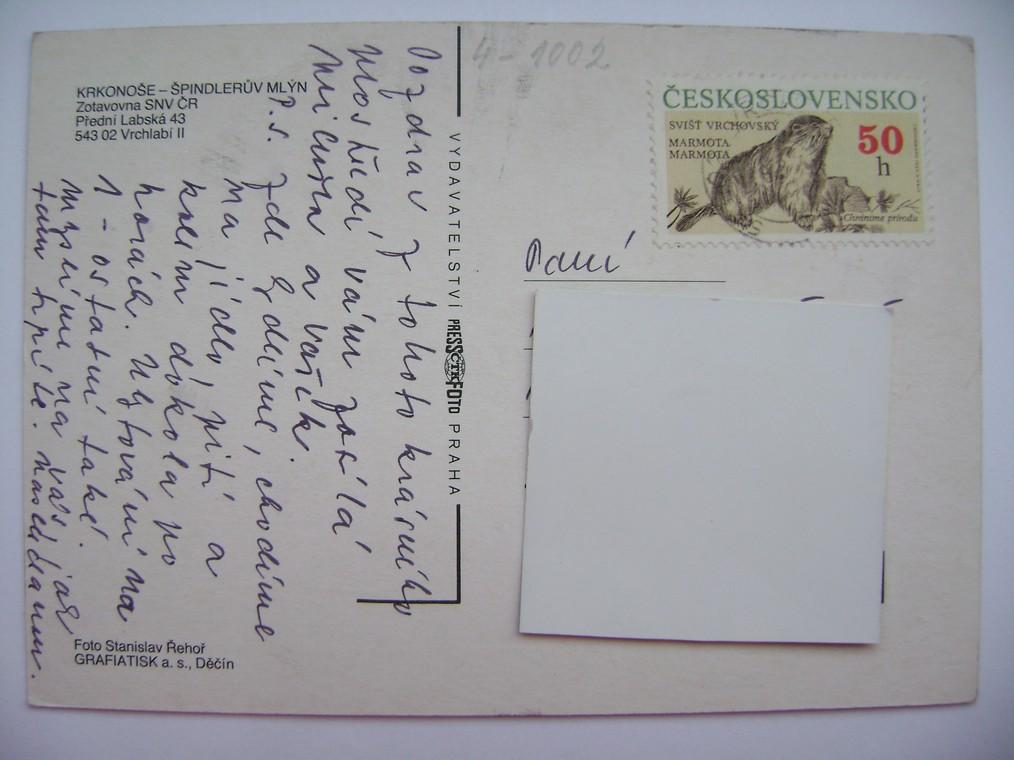 KRKONOŠE – ŠPINDLERŮV MLÝN
Zotavovna SNV ČR
Přední Labská 43
543 02 Vrchlabí II
Pozdrav z tohoto krásného
prostředí vám posílá
a Vašík.
P.S. Zde jedíme, chodíme
na jídlo, pití a
kolem dokola po
horách. Ubytování na
1 – ostatní také.
Myslíme na vás jak
tam trpíte.
Foto Stanislav Řehoř
GRAFIATISK a. s., Děčín
VYDAVATELSTVÍ PRESSFOTO PRAHA
ČTK
4-1002
ČESKOSLOVENSKO
SVIŠŤ VRCHOVSKÝ
MARMOTA
MARMOTA
50
h
Chráníme přírodu
Paní